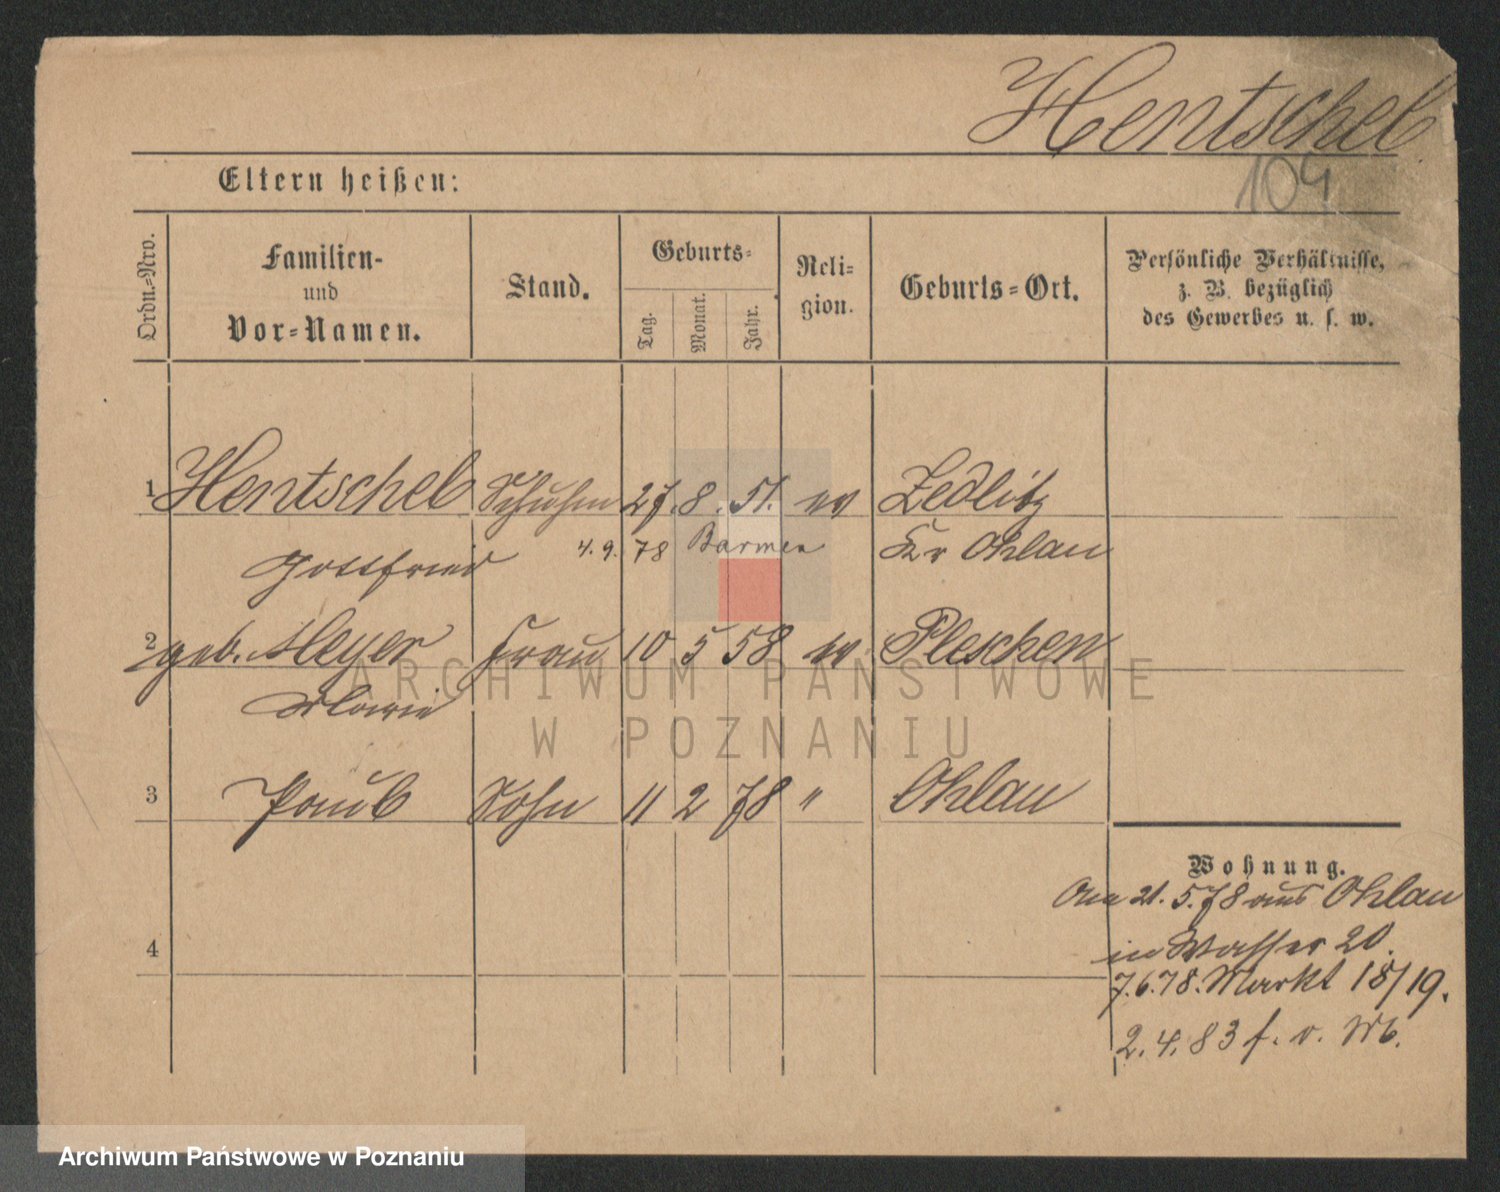 Hentschel
104
Eltern heißen:
Ordn.-Nro.
Familien-
und
Vor-Namen.
Stand.
Geburts-
Tag.
Monat.
Jahr.
Reli-
gion.
Geburts-Ort.
Persönliche Verhältnisse,
z. B. bezüglich
des Gewerbes u. s. w.
1 Hentschel Schuhm 27. 8. 51. ev Zedlitz
Gottfried 4. 9. 78 Barmen Kr Ohlau
2 geb. Meyer Frau 10 5 58 ev Pleschen
Marie
3 Paul Sohn 11 2 78 " Ohlau
Wohnung.
Am 21. 5. 78 aus Ohlau
in Wasser 20.
4
7. 6. 78. Markt 18/19.
2. 4. 83 f. v.
ARCHIWUM PAŃSTWOWE
W POZNANIU
Archiwum Państwowe w Poznaniu